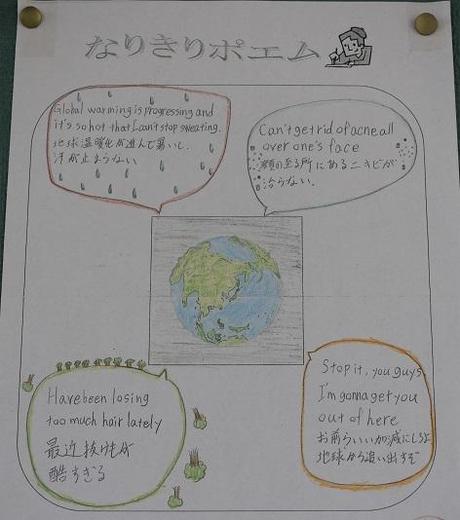 なりきりポエム
Global warming is progressing and
it's so hot that I can't stop sweating.
地球温暖化が進んで暑いし、
汗が止まらない
Can't get rid of acne all
over one's face
顔の至る所にあるニキビが
治らない。
Have been losing
too much hair lately
最近抜け毛が
酷すぎる
Stop it, you guys
I'm gonna get you
out of here
お前らいい加減にしろよ
地球から追い出すぞ